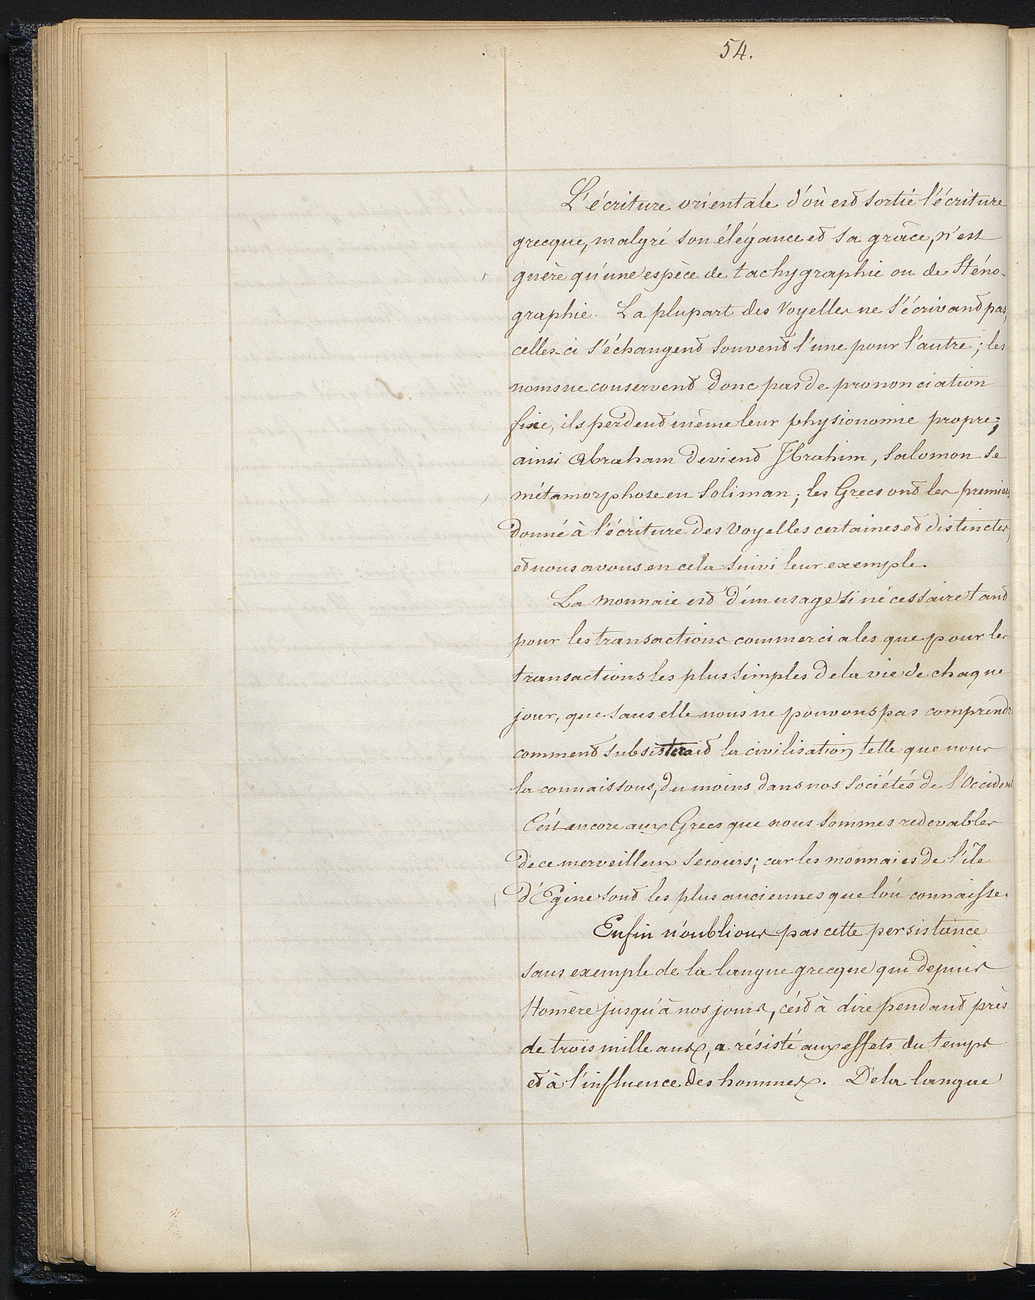 54.
L'écriture orientale d'où est sortie l'écriture
grecque, malgré son élégance et sa grâce, n'est
guère qu'une espèce de tachygraphie ou de sténo-
graphie. La plupart des voyelles ne s'écrivant pas,
celles-ci s'échangent souvent l'une pour l'autre ; les
noms ne conservent donc pas de prononciation
fixe, ils perdent même leur physionomie propre ;
ainsi Abraham devient Ibrahim, Salomon se
métamorphose en Soliman ; les Grecs ont les premiers
donné à l'écriture des voyelles certaines et distinctes,
et nous avons en cela suivi leur exemple.
La monnaie est d'un usage si nécessaire tant
pour les transactions commerciales que pour les
transactions les plus simples de la vie de chaque
jour, que sans elle nous ne pouvons pas comprendre
comment subsisterait la civilisation telle que nous
la connaissons, du moins dans nos sociétés de l'Occident
C'est encore aux Grecs que nous sommes redevables
de ce merveilleux secours ; car les monnaies de l'île
d'Egine sont les plus anciennes que l'on connaisse.
Enfin n'oublions pas cette persistance
sans exemple de la langue grecque qui depuis
Homère jusqu'à nos jours, c'est à dire pendant près
de trois mille ans, a résisté aux effets du temps
et à l'influence des hommes. De la langue